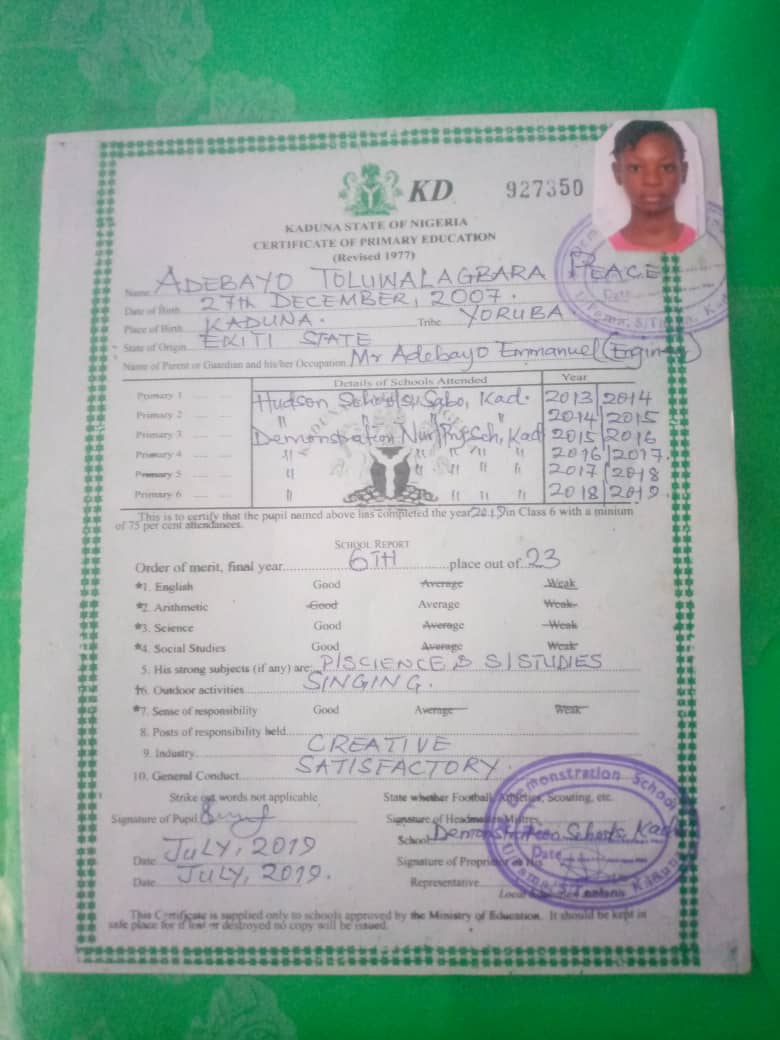 KD 927350
KADUNA STATE OF NIGERIA
CERTIFICATE OF PRIMARY EDUCATION
(Revised 1977)
Name ADEBAYO TOLUWALAGBARA PEACE
Date of Birth 27th DECEMBER, 2007.
Place of Birth KADUNA. Tribe YORUBA.
State of Origin EKITI STATE
Name of Parent or Guardian and his/her Occupation Mr Adebayo Emmanuel (Engineer)
Details of Schools Attended Year
Primary 1 Hudson Schools, Sabo, Kad. 2013 2014
Primary 2 " " " " 2014 2015
Primary 3 Demonstration Nur/Pry Sch, Kad 2015 2016
Primary 4 " " " " " 2016 2017.
Primary 5 " " " " " 2017 2018
Primary 6 " " " " " 2018 2019.
This is to certify that the pupil named above has completed the year 2019 in Class 6 with a minium
of 75 per cent attendances.
SCHOOL REPORT
Order of merit, final year 6TH place out of 23
*1. English Good Average Weak
*2. Arithmetic Good Average Weak
*3. Science Good Average Weak
*4. Social Studies Good Average Weak
5. His strong subjects (if any) are: P/SCIENCE & S/STUDIES
†6. Outdoor activities SINGING.
*7. Sense of responsibility Good Average Weak
8. Posts of responsibility held
9. Industry CREATIVE
10. General Conduct SATISFACTORY.
Strike out words not applicable State whether Football, Athletics, Scouting, etc.
Signature of Pupil Signature of Headmaster/Mistres
School Demonstration Schools Kad
Date JULY, 2019 Signature of Proprietor or His
Date JULY, 2019. Representative
Local
This Certificate is supplied only to schools approved by the Ministry of Education. It should be kept in
safe place for if lost or destroyed no copy will be issued.
Demonstration School
Date
Kaduna
Date